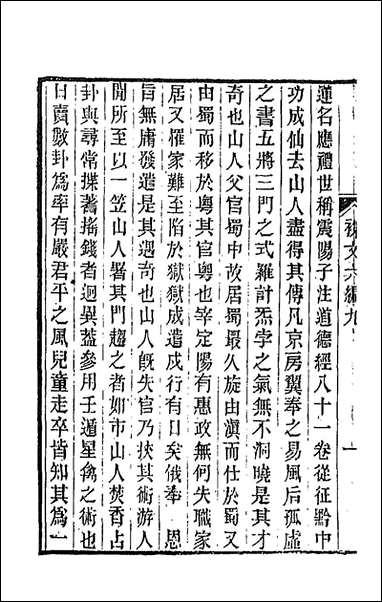 雜文六編九
一
蓮名應禮世稱震陽子注道德經八十一卷從征黔中
功成仙去山人盡得其傳凡京房翼奉之易風后孤虛
之書五將三門之式羅計炁孛之氣無不洞曉是其才
奇也山人父官蜀中故居蜀最久旋由滇而仕於蜀又
由蜀而移於粵其官粵也宰定陽有惠政無何失職家
居又罹家難至陷於獄獄成遣戍行有日矣俄奉　恩
旨無庸發遣是其遇奇也山人旣失官乃挾其術游人
閒所至以一笠山人署其門趨之者如市山人焚香占
卦與尋常揲蓍搖錢者迥異葢參用壬遁星禽之術也
日賣數卦爲率有嚴君平之風兒童走卒皆知其爲一